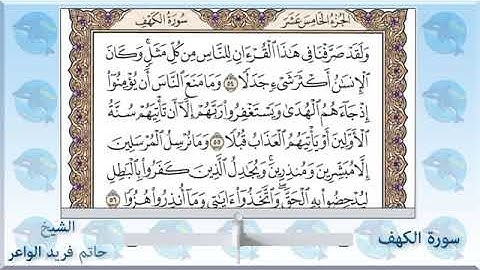 سُورَةُ الكَهْفِ
الجُزْءُ الخَامِسَ عَشَرَ
وَلَقَدْ صَرَّفْنَا فِي هَٰذَا ٱلْقُرْءَانِ لِلنَّاسِ مِن كُلِّ مَثَلٍ ۚ وَكَانَ
ٱلْإِنسَٰنُ أَكْثَرَ شَىْءٍ جَدَلًا ٥٤ وَمَا مَنَعَ ٱلنَّاسَ أَن يُؤْمِنُوٓا۟
إِذْ جَآءَهُمُ ٱلْهُدَىٰ وَيَسْتَغْفِرُوا۟ رَبَّهُمْ إِلَّآ أَن تَأْتِيَهُمْ سُنَّةُ
ٱلْأَوَّلِينَ أَوْ يَأْتِيَهُمُ ٱلْعَذَابُ قُبُلًا ٥٥ وَمَا نُرْسِلُ ٱلْمُرْسَلِينَ
إِلَّا مُبَشِّرِينَ وَمُنذِرِينَ ۚ وَيُجَٰدِلُ ٱلَّذِينَ كَفَرُوا۟ بِٱلْبَٰطِلِ
لِيُدْحِضُوا۟ بِهِ ٱلْحَقَّ ۖ وَٱتَّخَذُوٓا۟ ءَايَٰتِى وَمَآ أُنذِرُوا۟ هُزُوًا ٥٦
سورة الكهف
الشيخ
حاتم فريد الواعر